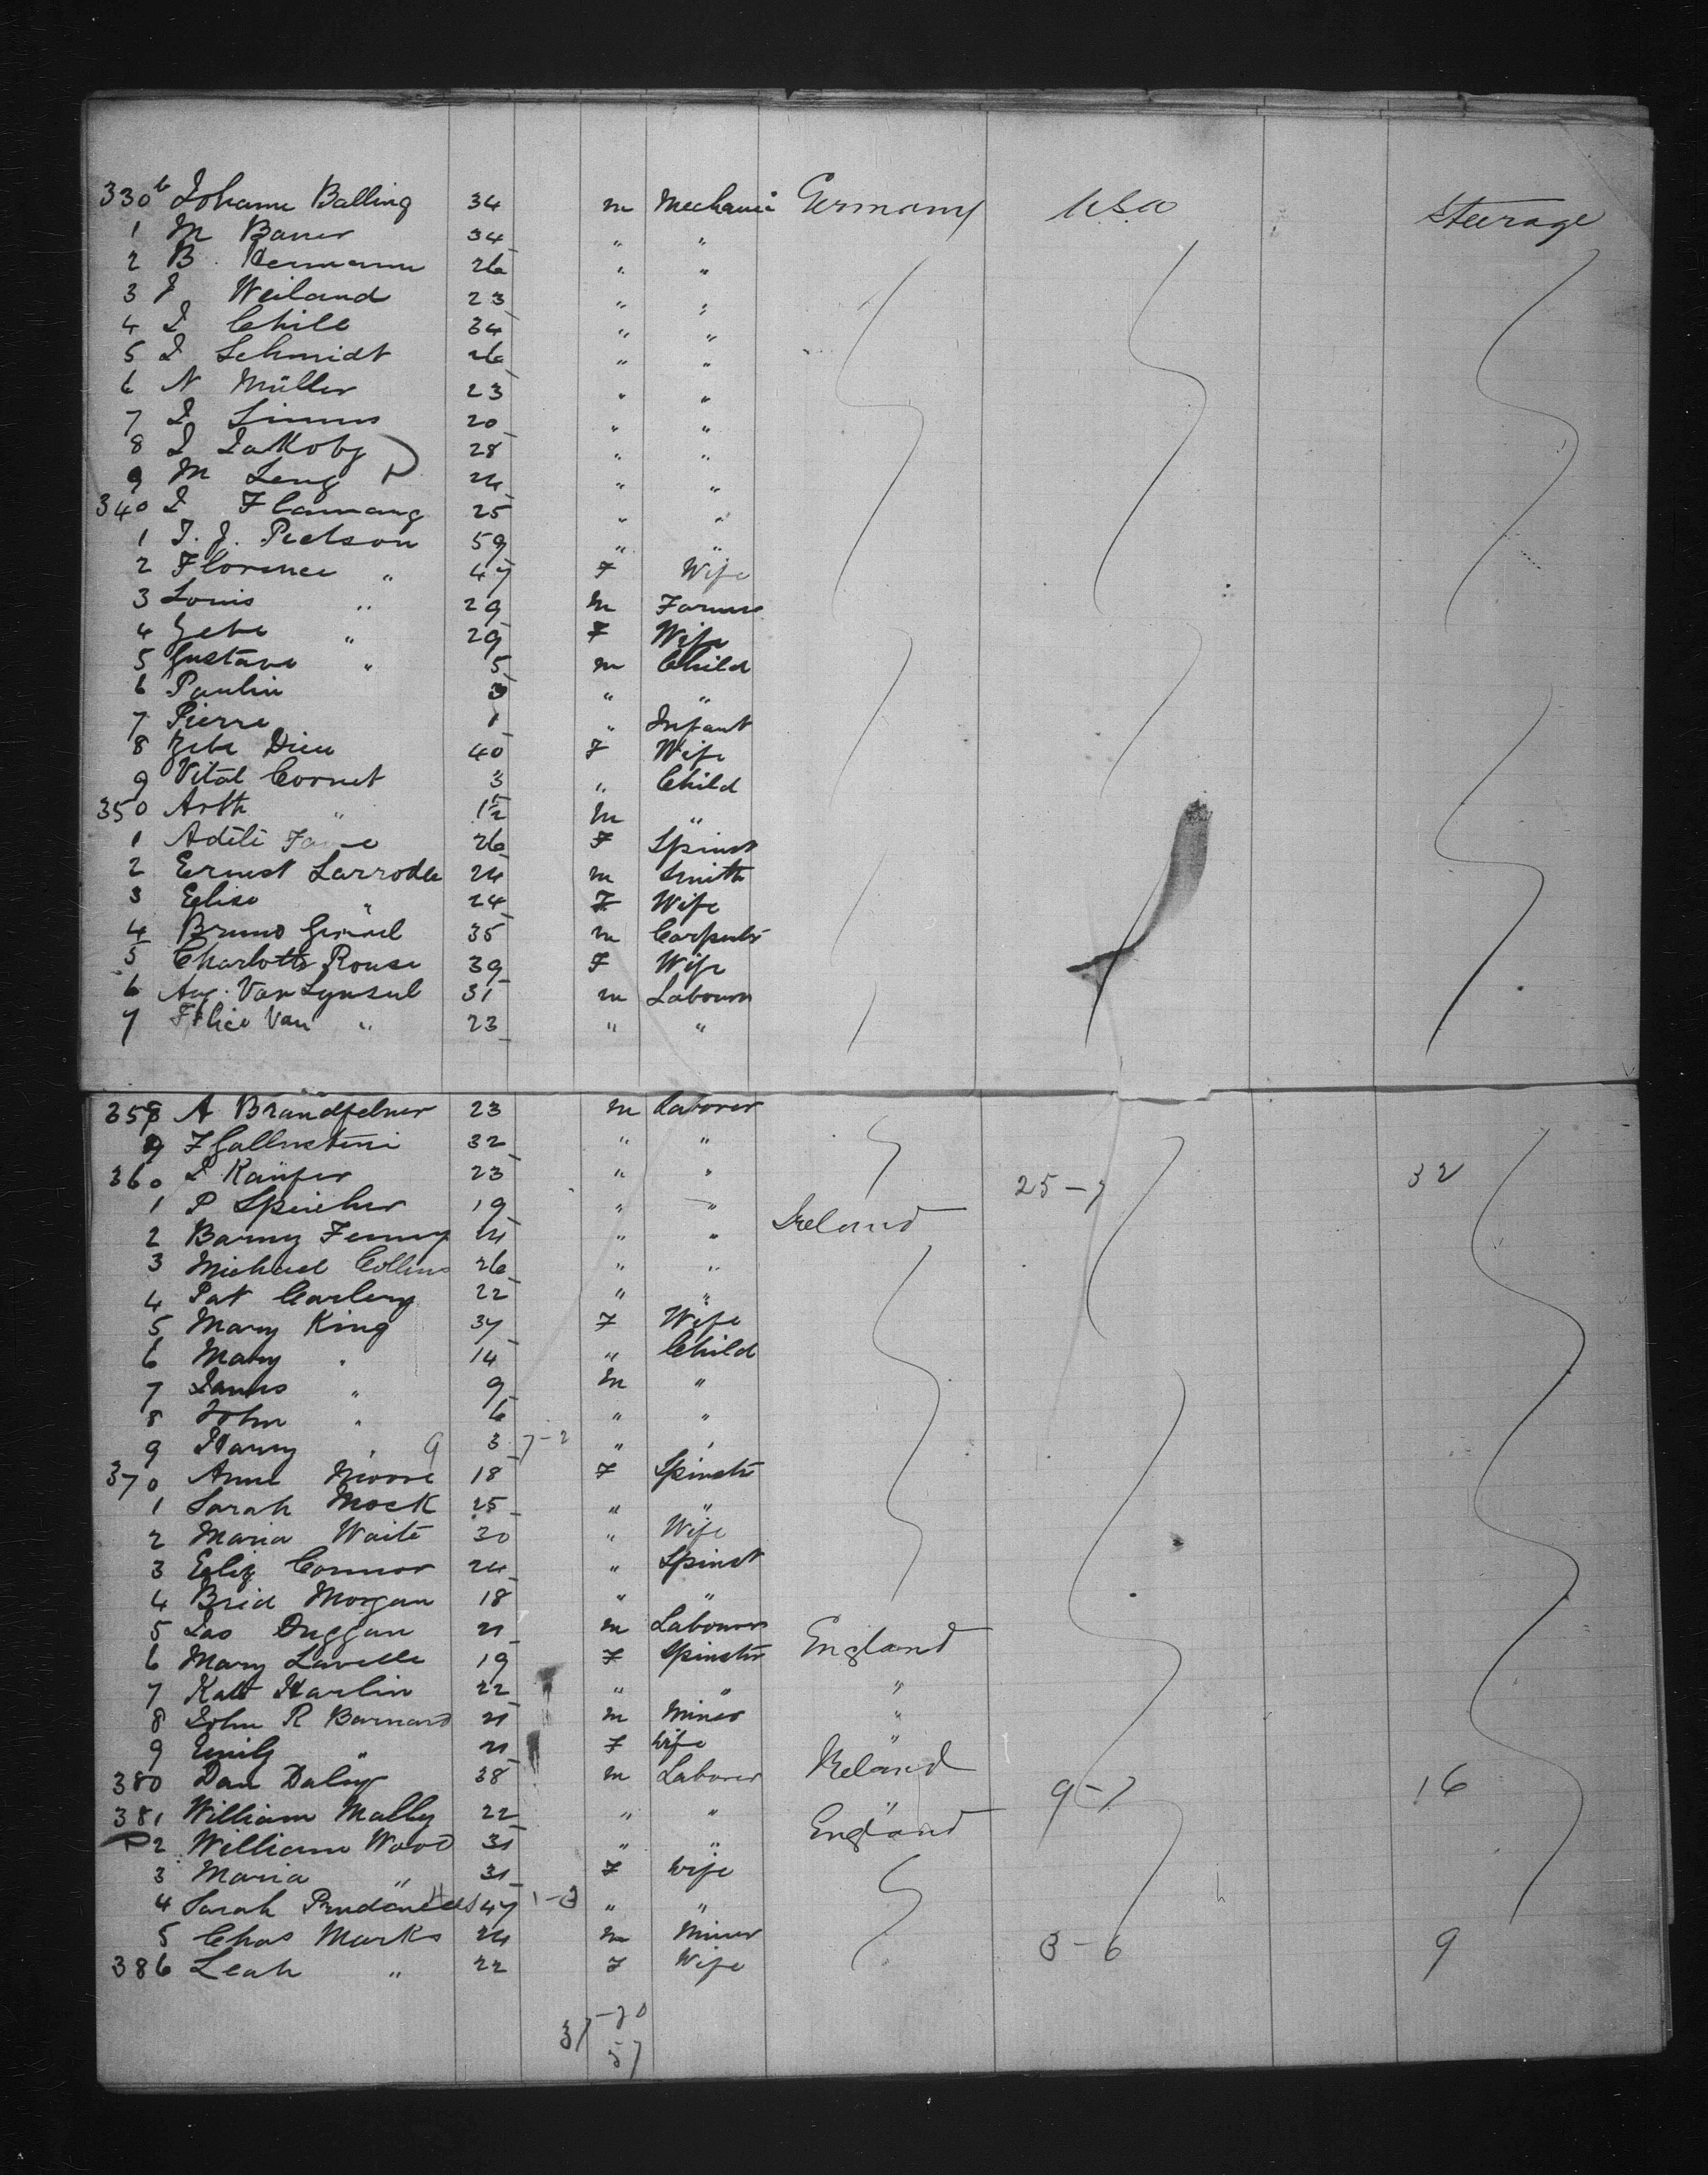 330 Johann Balling 34 m Mechanic Germany USA Steerage
1 M Bauer 34 " "
2 B. Hermann 26 " "
3 J Weiland 23 " "
4 J Chile 34 " "
5 J Schmidt 26 " "
6 N Müller 23 " "
7 J Simms 20 " "
8 J Jakoby 28 " "
9 M Leng 24 " "
340 J Flamang 25 " "
1 J. J. Pietson 59 " "
2 Florence " 47 F Wife
3 Louis " 29 m Farmer
4 Zebe " 29 F Wife
5 Gustave " 5 m Child
6 Paulin 3 " "
7 Pierre 1 " Infant
8 Zebe Dieu 40 F Wife
9 Vital Cornet 3 " Child
350 Arth " m "
1 Adele 26 F Spinst
2 Ernest Larrode 24 m Smith
3 Elise " 24 F Wife
4 Bruno 35 m Carpentr
5 Charlotte Rouse 39 F Wife
6 Aug. Van Lynseel 31 m Labourer
7 Felice Van " 23 " "
358 A Brandfelner 23 m Laborer
9 F Gallusteni 32 " "
360 J Kaüfer 23 " " 25-7 32
1 P Speicher 19 " " Ireland
2 Barny Feeney 24 " "
3 Michael Collins 26 " "
4 Pat Carleng 22 " "
5 Mary King 37 F Wife
6 Mary " 14 " Child
7 James " 9 m "
8 John " 6 " "
9 Harry " 9 3 7-2 " "
370 Anne Moore 18 F Spinstr
1 Sarah Mock 25 " "
2 Maria Waite 30 " Wife
3 Eliz Connor 24 " Spinst
4 Brid Morgan 18 " "
5 Jas Duggan 21 m Labourer England
6 Mary Lavelle 19 F Spinstr
7 Kate Harlin 22 " " "
8 John R Barnard 21 m Miner "
9 Emily " 21 F Wife "
380 Dan Daly 38 m Laborer Ireland 9-7 16
381 William Mally 22 " " "
2 William Wood 31 " " England
3 Maria " 31 F Wife
4 Sarah 47 1-3 " "
5 Chas Marks 24 m Miner 3-6 9
386 Leah " 22 F Wife
37-20
57